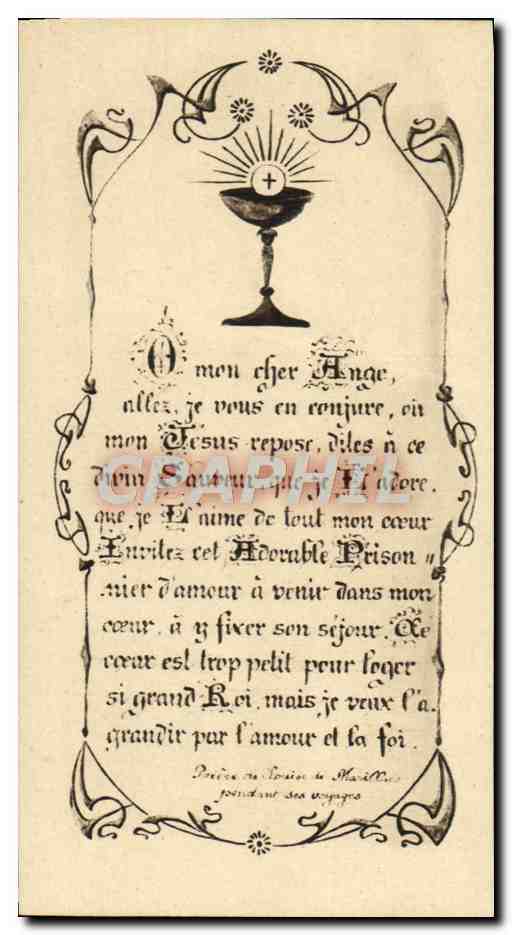 O mon cher Ange,
allez, je vous en conjure, où
mon Jésus repose, dites à ce
divin Sauveur que je L'adore,
que je L'aime de tout mon cœur
Invitez cet Adorable Prison=
nier d'amour à venir dans mon
cœur, à y fixer son séjour. Ce
cœur est trop petit pour loger
si grand Roi, mais je veux l'a-
grandir par l'amour et la foi.
Prière de Louise de Marillac
pendant ses voyages
CPAPHIL